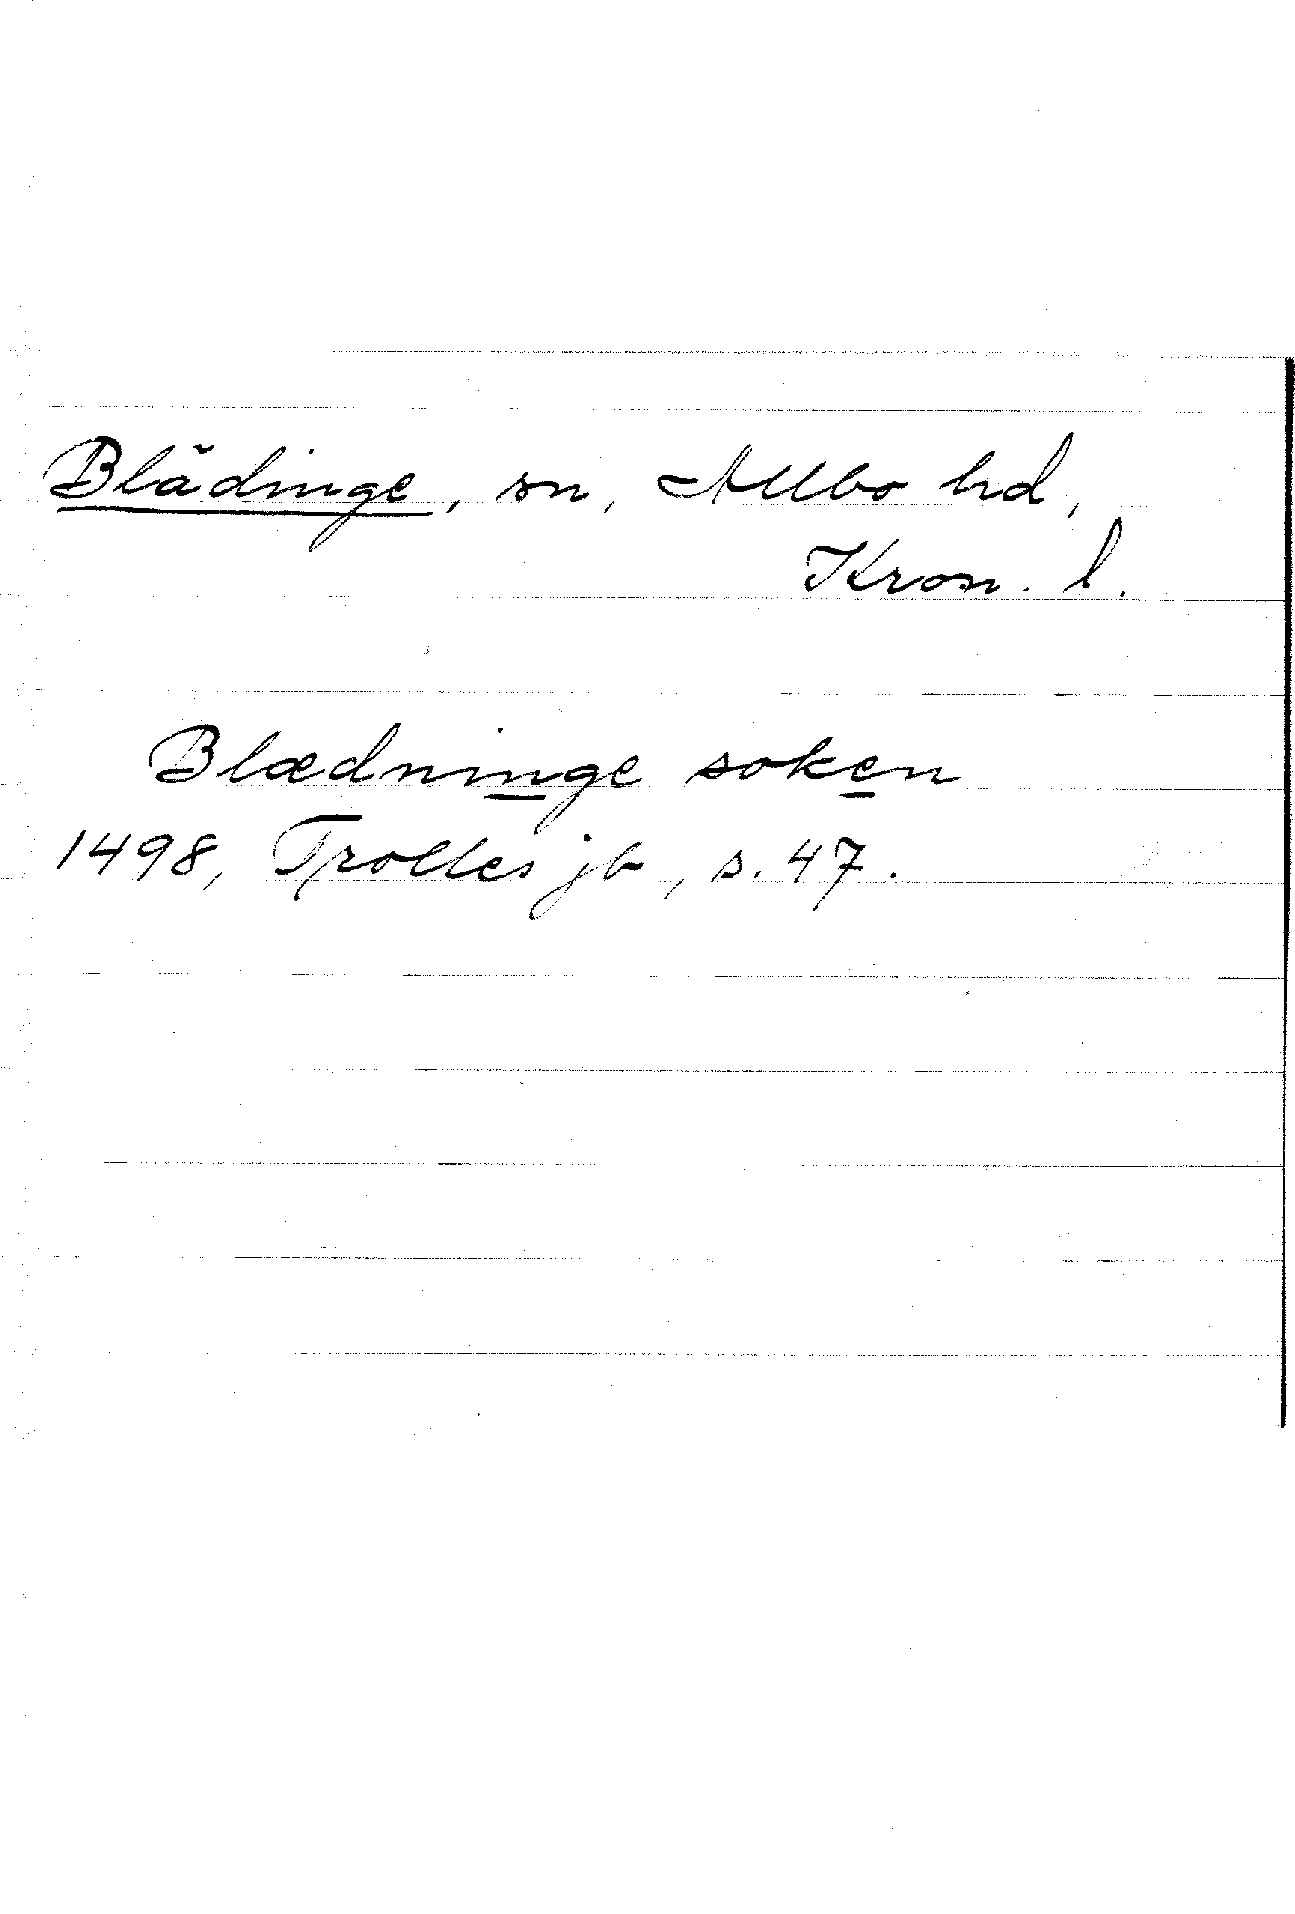 Blädinge, sn, Allbo hd,
Kron. l.
Blædninge soken
1498, Trolles jb, s. 47.